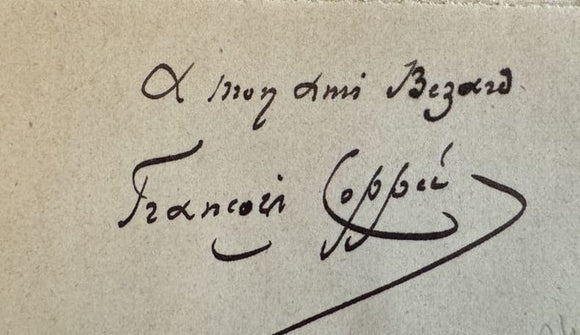 A mon ami Bezard
François Coppée